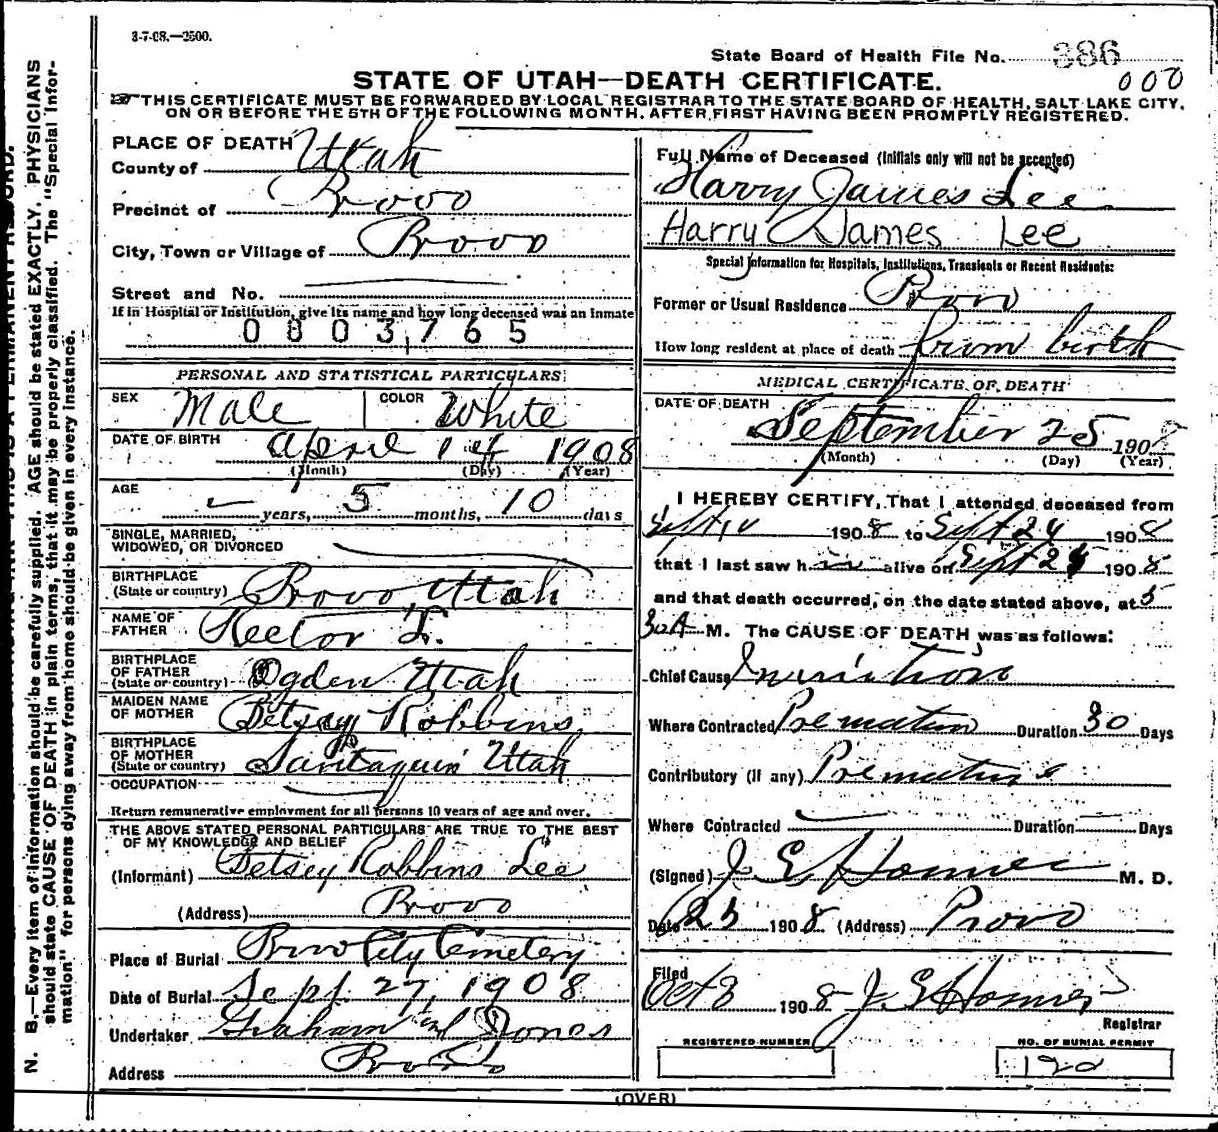 3-7-08.—2500.
State Board of Health File No. 386
000
STATE OF UTAH—DEATH CERTIFICATE.
THIS CERTIFICATE MUST BE FORWARDED BY LOCAL REGISTRAR TO THE STATE BOARD OF HEALTH, SALT LAKE CITY,
ON OR BEFORE THE 5TH OF THE FOLLOWING MONTH, AFTER FIRST HAVING BEEN PROMPTLY REGISTERED.
PLACE OF DEATH
County of Utah
Precinct of Provo
City, Town or Village of Provo
Street and No.
If in Hospital or Institution, give its name and how long deceased was an Inmate
0803765
PERSONAL AND STATISTICAL PARTICULARS
SEX Male COLOR White
DATE OF BIRTH April 14 1908
(Month) (Day) (Year)
AGE
years, 5 months, 10 days
SINGLE, MARRIED,
WIDOWED, OR DIVORCED
BIRTHPLACE
(State or country) Provo Utah
NAME OF
FATHER Hector
BIRTHPLACE
OF FATHER
(State or country) Ogden Utah
MAIDEN NAME
OF MOTHER Betsey Robbins
BIRTHPLACE
OF MOTHER
(State or country) Santaquin Utah
OCCUPATION
Return remunerative employment for all persons 10 years of age and over.
THE ABOVE STATED PERSONAL PARTICULARS ARE TRUE TO THE BEST
OF MY KNOWLEDGE AND BELIEF
(Informant) Betsey Robbins Lee
(Address) Provo
Place of Burial Provo City Cemetery
Date of Burial Sept. 27, 1908
Undertaker Graham and Jones
Address Provo
Full Name of Deceased (Initials only will not be accepted)
Harry James Lee
Harry James Lee
Special Information for Hospitals, Institutions, Transients or Recent Residents:
Former or Usual Residence Provo
How long resident at place of death from birth
MEDICAL CERTIFICATE OF DEATH
DATE OF DEATH
September 25 1908
(Month) (Day) (Year)
I HEREBY CERTIFY, That I attended deceased from
Sept 1908 to Sept 24 1908
that I last saw him alive on Sept 1908
and that death occurred, on the date stated above, at 5
30 A M. The CAUSE OF DEATH was as follows:
Chief Cause Inanition
Where Contracted Duration 30 Days
Contributory (if any) Premature
Where Contracted Duration Days
(Signed) J E Homer M. D.
Date 25 1908 (Address) Provo
Filed
Oct 3 1908 J. E Homer
Registrar
REGISTERED NUMBER
NO. OF BURIAL PERMIT
120
(OVER)
N. B.—Every item of information should be carefully supplied. AGE should be stated EXACTLY. PHYSICIANS
should state CAUSE OF DEATH in plain terms, that it may be properly classified. The "Special Infor-
mation" for persons dying away from home should be given in every instance.